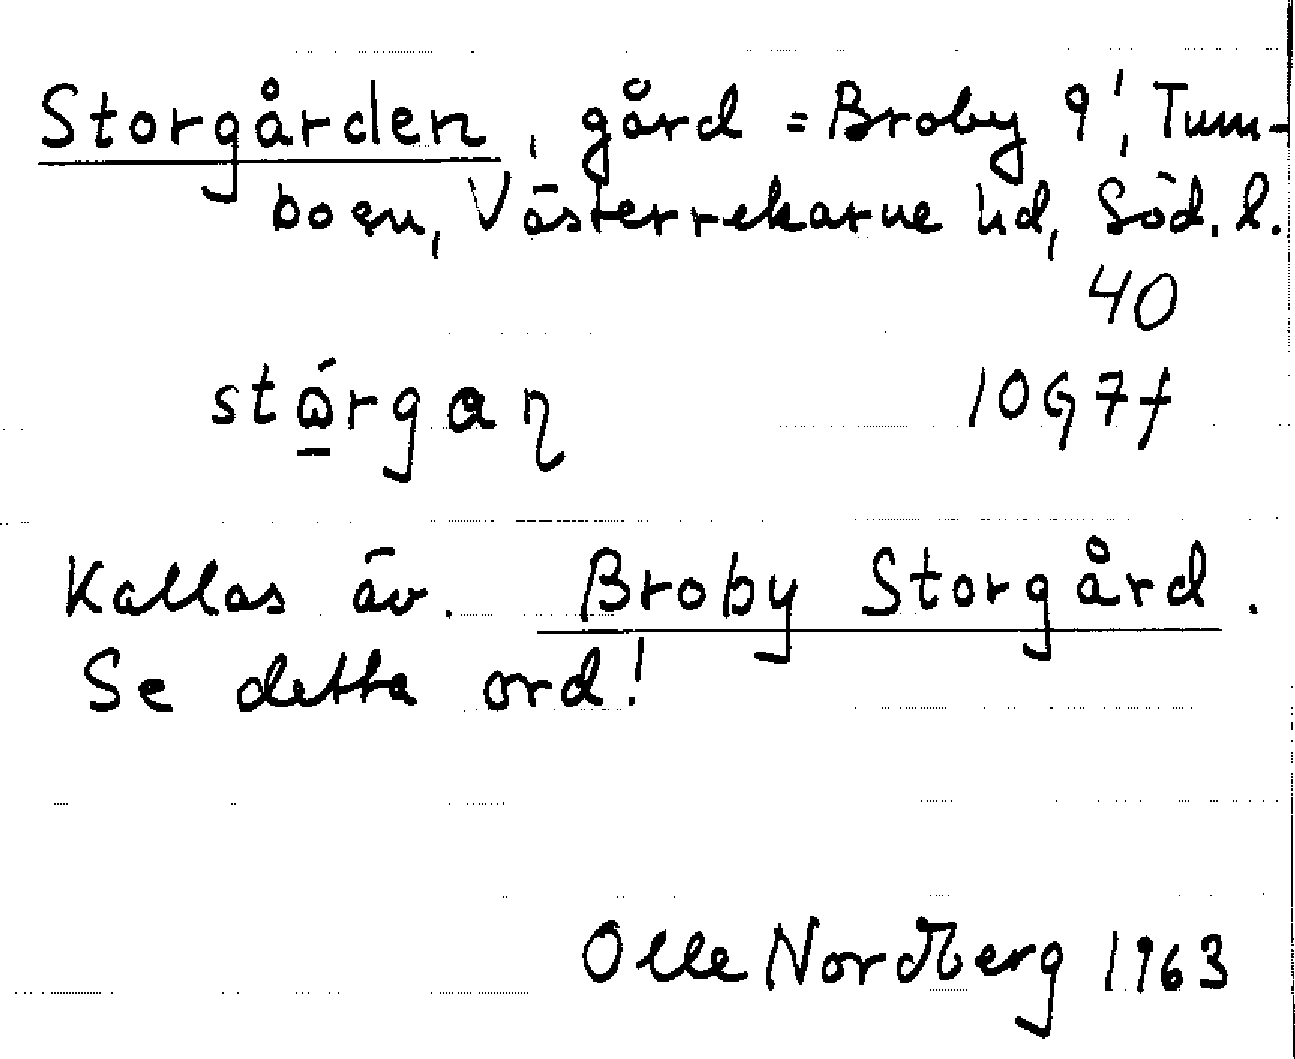 Storgården, gård = Broby 9¹, Tum-
bo sn, Västerrekarne hd, Söd. l.
40
stǫ́rgaɳ 10G7f
Kallas äv. Broby Storgård.
Se detta ord!
Olle Nordberg 1963